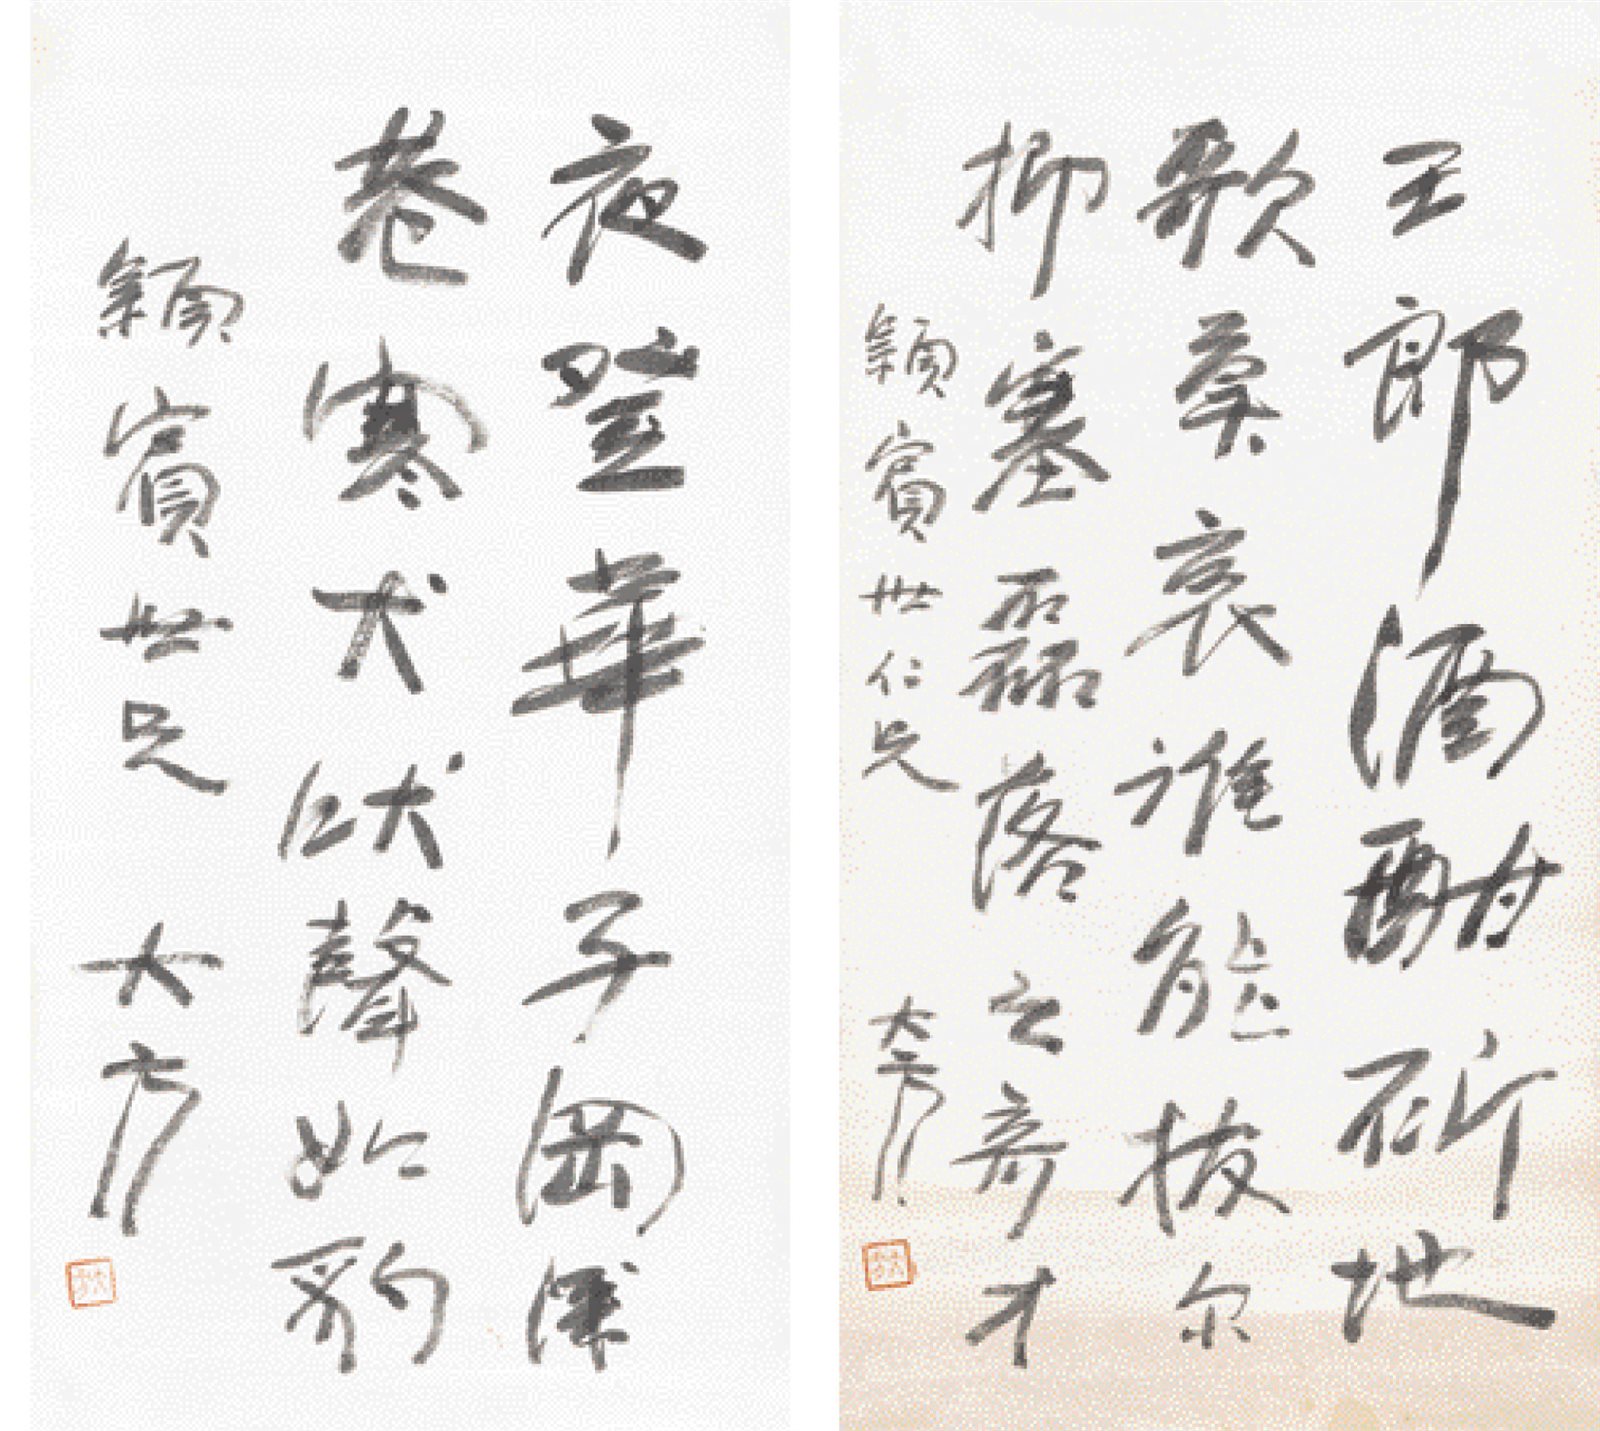 王郎酒酣斫地
歌莫哀誰能拔尔
抑塞磊落之奇才
穎賓世仁兄
大方
夜登華子岡深
巷寒犬吠聲如豹
穎賓世兄
大方